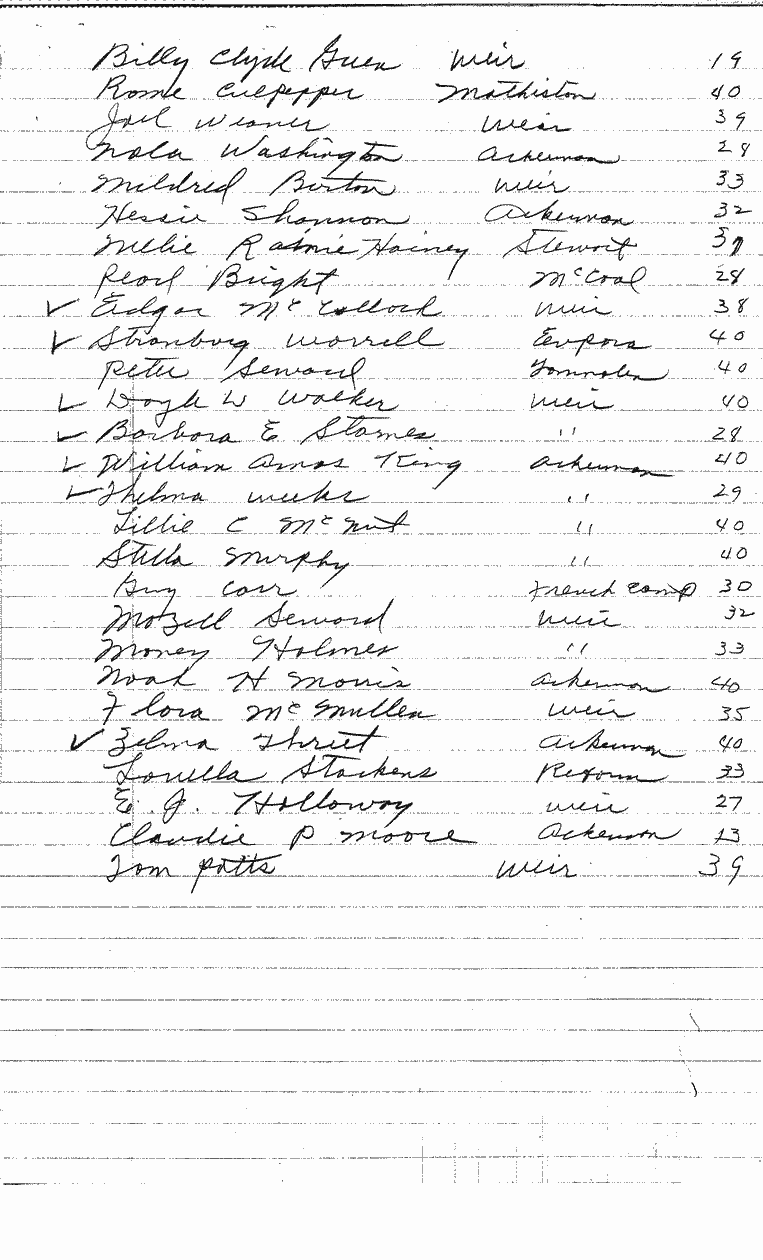 Billy Clyde Guen Weir 19
Rome Culpepper Mathiston 40
Joel Weaner Weir 39
Nola Washington Ackerman 28
Mildred Burton Weir 33
Hessie Shannon Ackerman 32
Nellie Hainey Stewart 37
Pearl Bright McCool 28
✓ Edgar McCollock Weir 38
✓ Stranburg Worrell Eupora 40
Peter Seward Tomnolen 40
✓ Doyle W Walker Weir 40
✓ Barbara E Starnes " 28
✓ William Amos King Ackerman 40
✓ Thelma Weeks " 29
Lillie C McNutt " 40
Stella Murphy " 40
Guy Carr French Camp 30
Mozell Seward Weir 32
Money Holmes " 33
Noah H Morris Ackerman 40
Flora McMullen Weir 35
✓ Zelma Threet Ackerman 40
Louella Stockens Reform 33
E. J. Holloway Weir 27
Claudie P Moore Ackerman 13
Tom Potts Weir 39